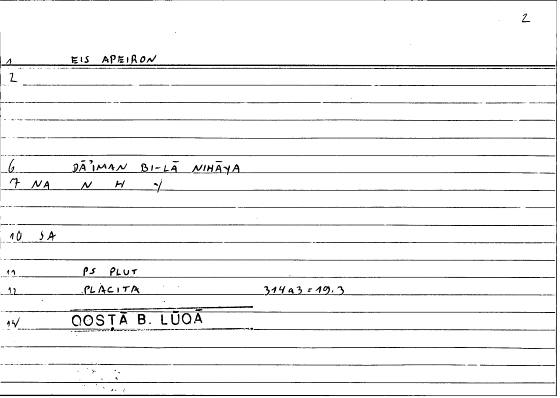 2
1 EIS APEIRON
2
6 DĀʾIMAN BI-LĀ NIHĀYA
7 NA N H Y
10 SA
11 PS PLUT
12 PLACITA 314a3 = 19.3
14 QOSṬĀ B. LŪQĀ